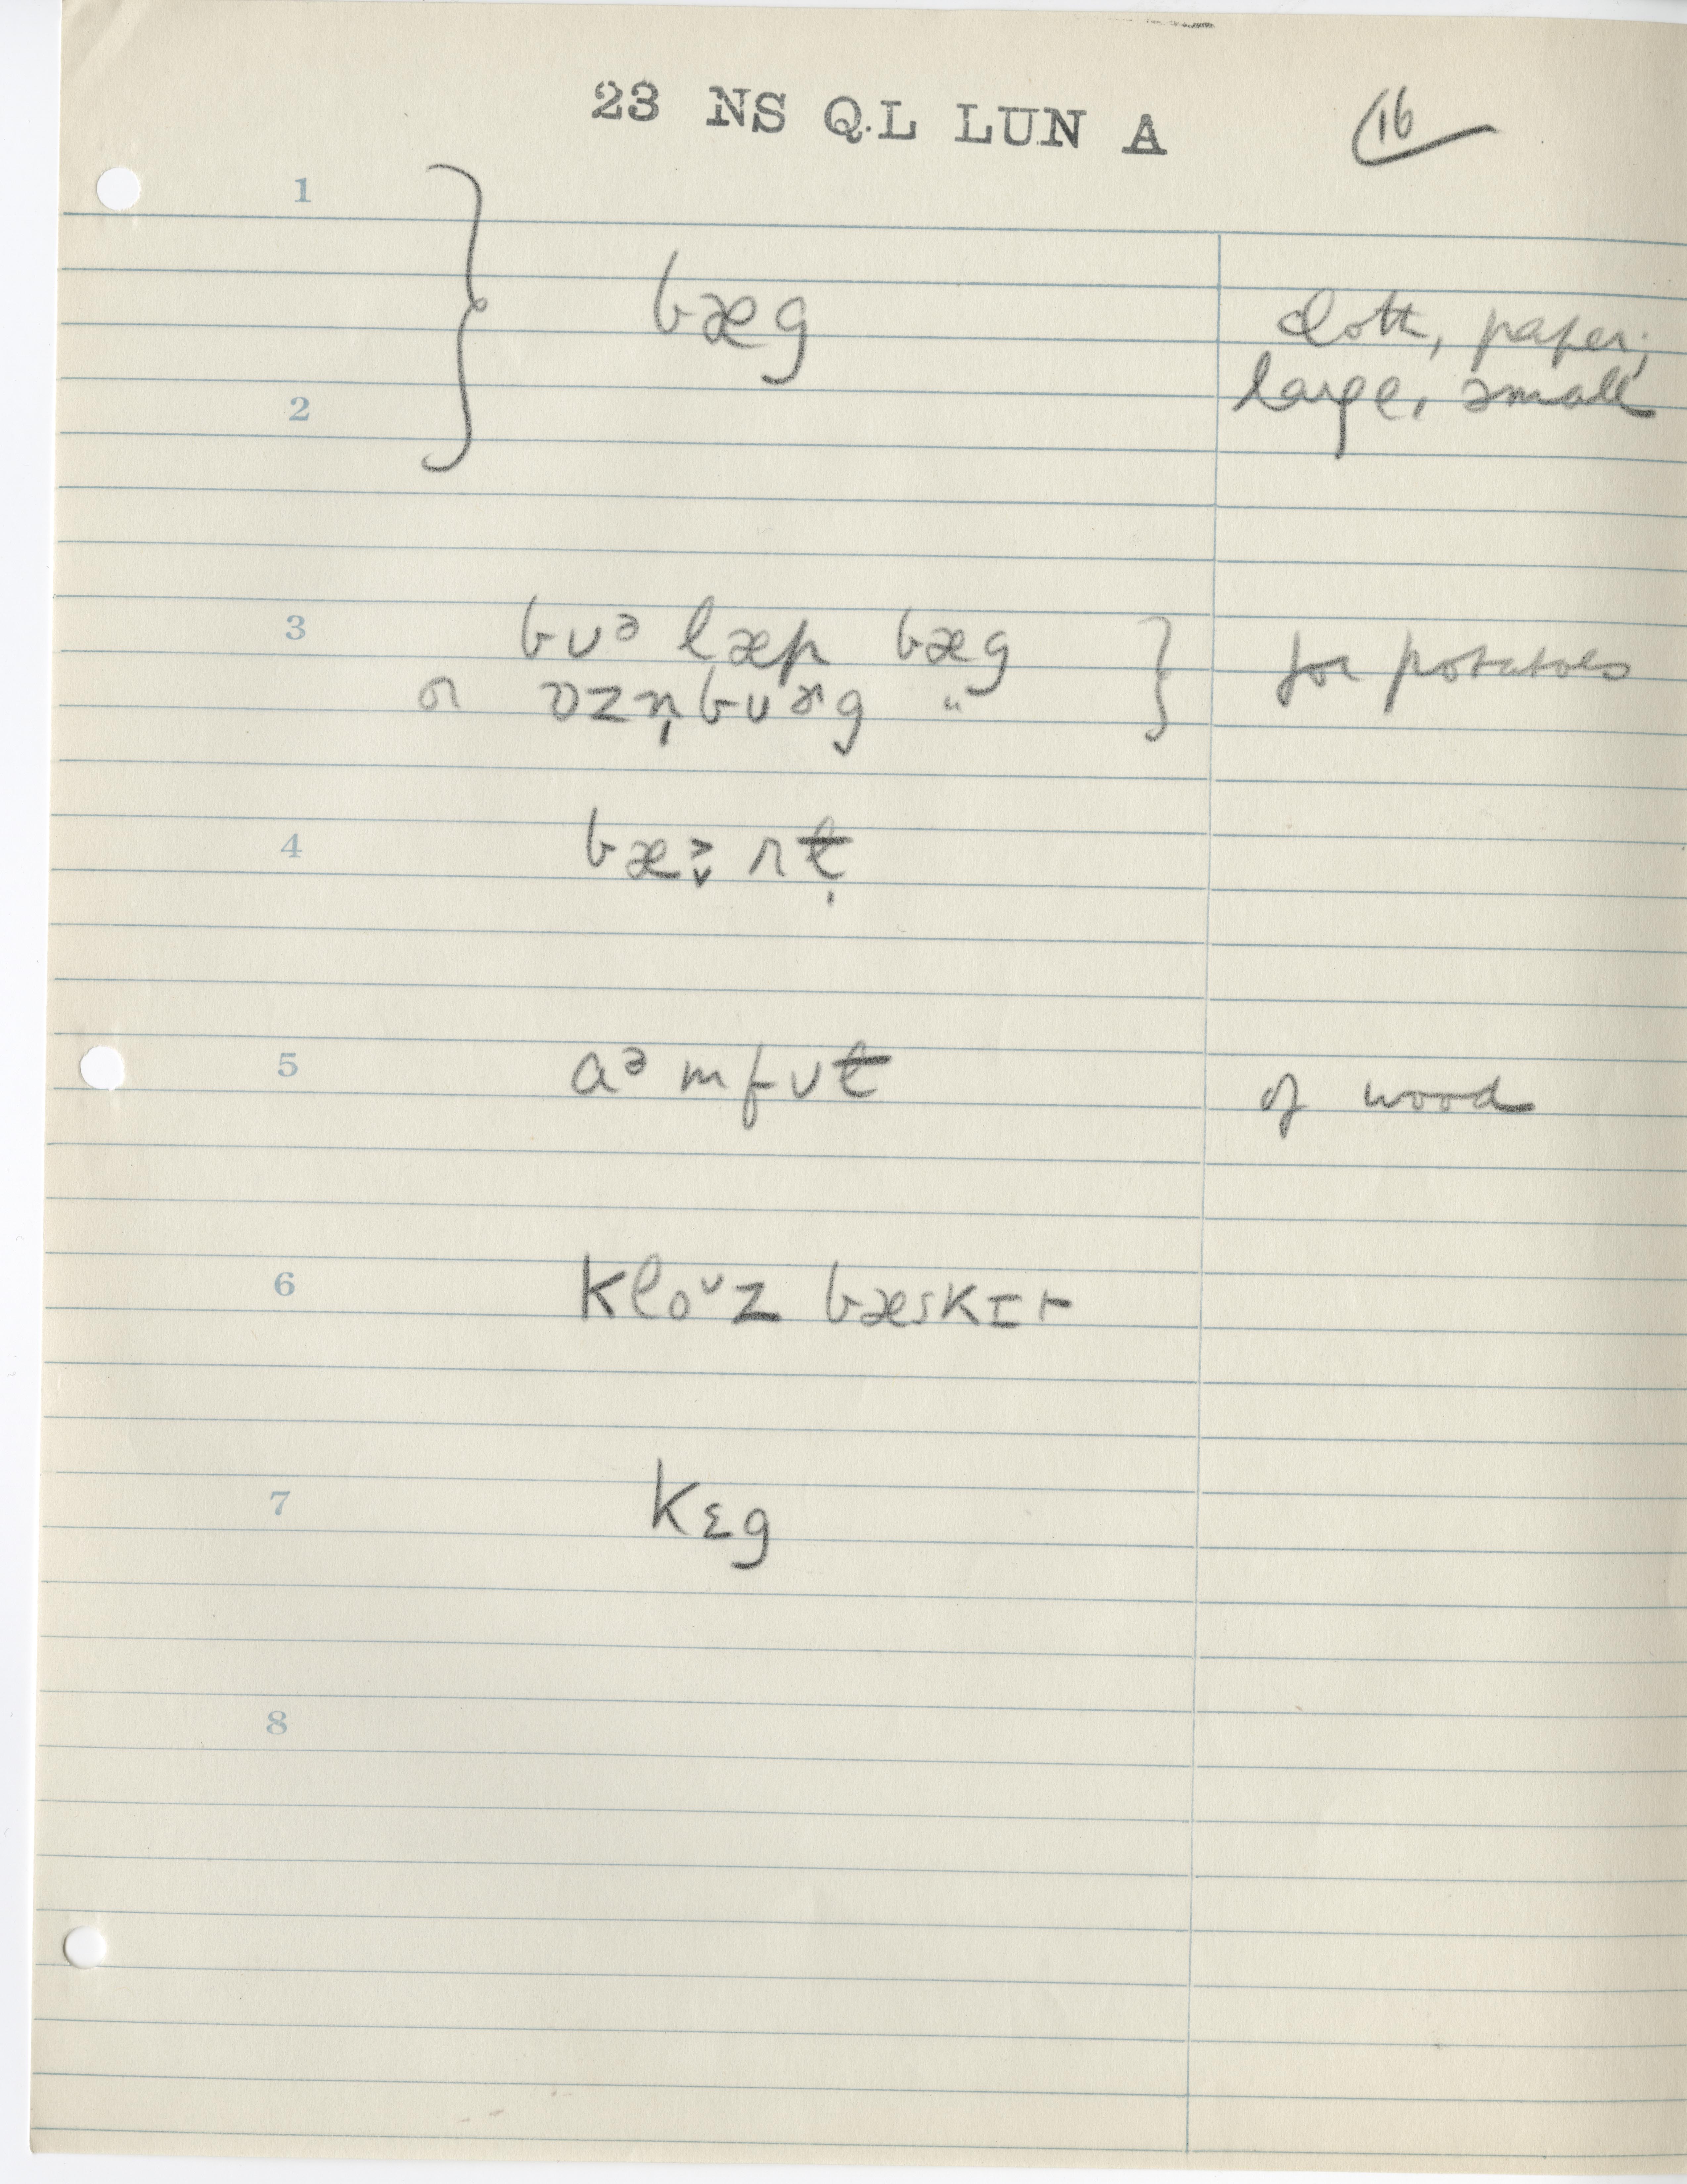 23 NS Q.L LUN A 16
1
bæg cloth, paper;
2 large, small
3 bʊᵊ læp bæg } for potatoes
or ɒzn̩bʊɚg "
4
5 aᵊ mfʊt̬ of wood
6 kloᶷz bæskɪt
7 kɛg
8